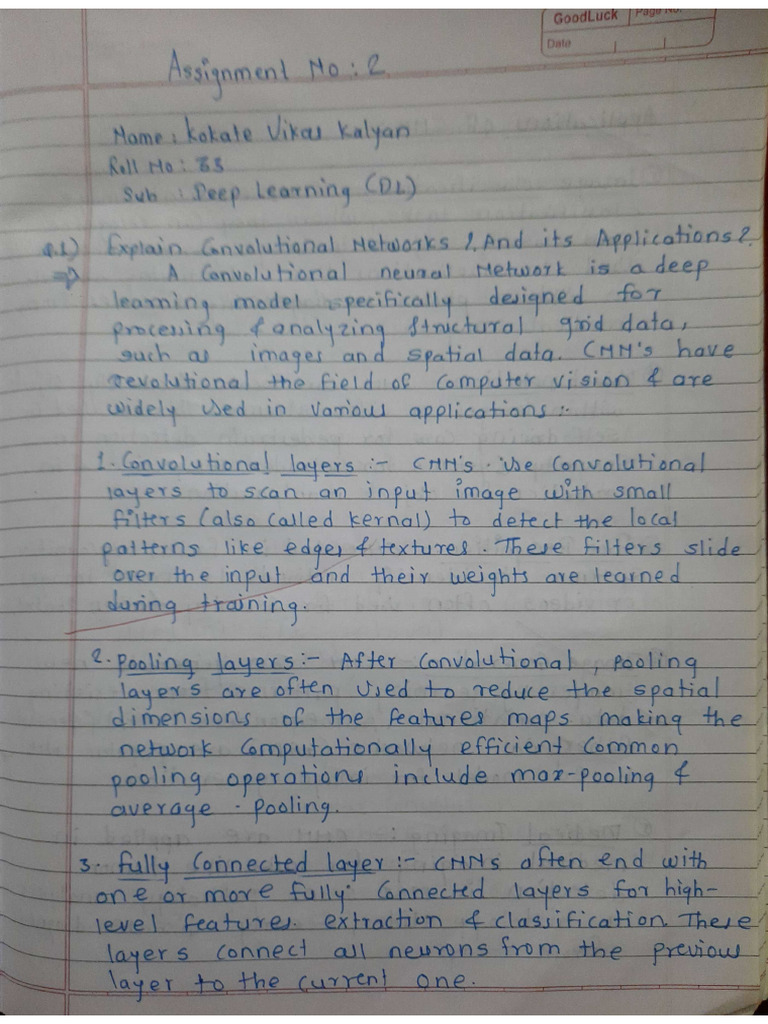 GoodLuck Page No.
Date
Assignment No : 2
Name : Kokate Vikas Kalyan
Roll No : 33
Sub : Deep Learning (DL)
Q.1) Explain Convolutional Networks ? And its Applications ?
⇒ A Convolutional neural Network is a deep
learning model specifically designed for
processing & analyzing structural grid data,
such as images and spatial data. CNN's have
revolutional the field of computer vision & are
widely used in various applications :-
1. Convolutional layers :- CNN's use convolutional
layers to scan an input image with small
filters (also called kernal) to detect the local
patterns like edges & textures. These filters slide
over the input and their weights are learned
during training.
2. Pooling layers :- After convolutional , pooling
layers are often used to reduce the spatial
dimensions of the features maps making the
network computationally efficient common
pooling operations include max-pooling &
average - pooling.
3. fully connected layer :- CNNs often end with
one or more fully connected layers for high-
level features extraction & classification. These
layers connect all neurons from the previous
layer to the current one.